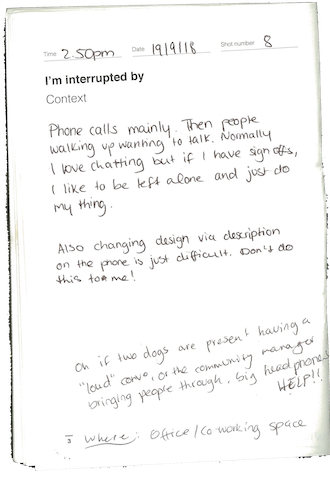 Time 2.50pm Date 19/9/18 Shot number 8
I'm interrupted by
Context
Phone calls mainly. Then people
walking up wanting to talk. Normally
I love chatting but if I have sign offs,
I like to be left alone and just do
my thing.
Also changing design via description
on the phone is just difficult. Don't do
this to me!
Oh if two dogs are present having a
"loud" convo, or the community manager
bringing people through, big headphones
HELP!!
Where: Office/Co-working space